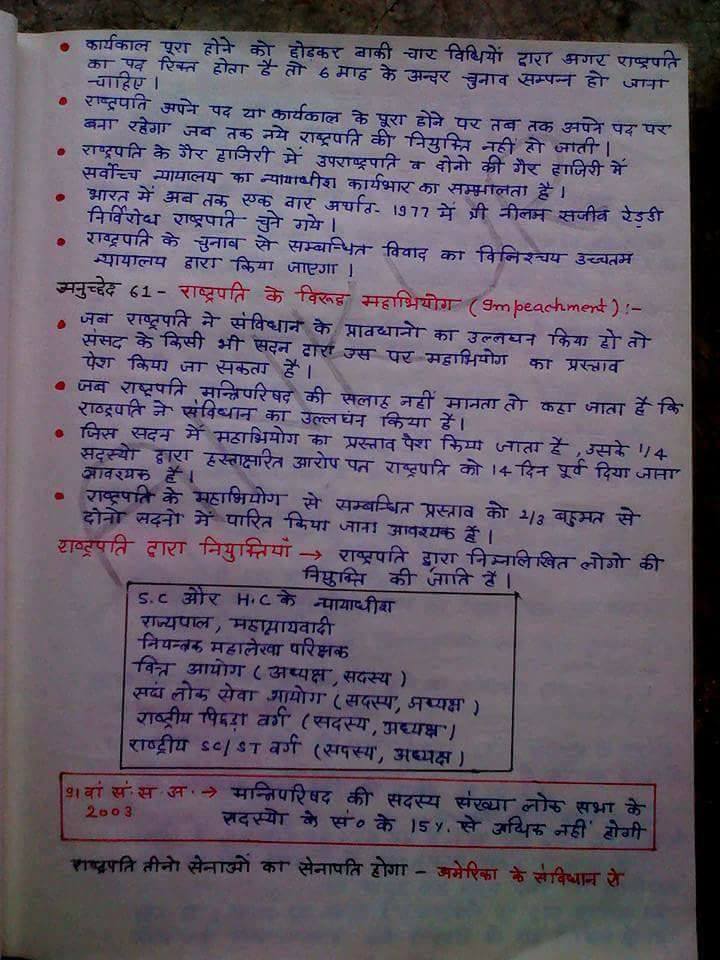 • कार्यकाल पूरा होने को छोडकर बाकी चार विधियों द्वारा अगर राष्ट्रपति
का पद रिक्त होता है तो 6 माह के अन्दर चुनाव सम्पन्न हो जाना
चाहिए।
• राष्ट्रपति अपने पद या कार्यकाल के पूरा होने पर तब तक अपने पद पर
बना रहेगा जब तक नये राष्ट्रपति की नियुक्ति नहीं हो जाती।
• राष्ट्रपति के गैर हाजिरी में उपराष्ट्रपति व दोनो की गैर हाजिरी में
सर्वोच्च न्यायालय का न्यायाधीश कार्यभार का सम्भालता है।
• भारत में अब तक एक बार अर्थात- 1977 में श्री नीलम सजीव रेड्डी
निर्विरोध राष्ट्रपति चुने गये।
• राष्ट्रपति के चुनाव से सम्बन्धित विवाद का विनिश्चय उच्चतम
न्यायालय द्वारा किया जाएगा।
अनुच्छेद 61- राष्ट्रपति के विरूद्ध महाभियोग (Impeachment) :-
• जब राष्ट्रपति ने संविधान के प्रावधानो का उल्लघन किया हो तो
संसद के किसी भी सदन द्वारा उस पर महाभियोग का प्रस्ताव
पेश किया जा सकता है।
• जब राष्ट्रपति मन्त्रिपरिषद की सलाह नहीं मानता तो कहा जाता है कि
राष्ट्रपति ने संविधान का उल्लघंन किया है।
• जिस सदन में महाभियोग का प्रस्ताव पेश किया जाता है, उसके 1/4
सदस्यो द्वारा हस्ताक्षारित आरोप पत्र राष्ट्रपति को 14 दिन पूर्व दिया जाना
आवश्यक है।
• राष्ट्रपति के महाभियोग से सम्बन्धित प्रस्ताव को 2/3 बहुमत से
दोनो सदनो में पारित किया जाना आवश्यक है।
राष्ट्रपति द्वारा नियुक्तियाँ → राष्ट्रपति द्वारा निम्नलिखित लोगो की
नियुक्ति की जाति हैं।
S.C और H.C के न्यायाधीश
राज्यपाल, महान्यायवादी
नियन्त्रक महालेखा परिक्षक
वित्त आयोग (अध्यक्ष, सदस्य)
संघ लोक सेवा आयोग (सदस्य, अध्यक्ष)
राष्ट्रीय पिछड़ा वर्ग (सदस्य, अध्यक्ष)
राष्ट्रीय SC/ST वर्ग (सदस्य, अध्यक्ष)
91 वां सं. स. अ. → मन्त्रिपरिषद की सदस्य संख्या लोक सभा के
2003 सदस्यो के सं० के 15% से अधिक नहीं होगी
राष्ट्रपति तीनो सेनाओं का सेनापति होगा - अमेरिका के संविधान से